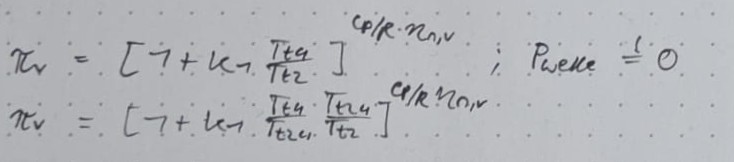 π_v = [1 + k_1 T_t4/T_t2]^(cp/R · η_n,v) ; P_welle =! 0
π_v = [1 + k_1 T_t4/T_t24 · T_t24/T_t2]^(cp/R η_n,v)